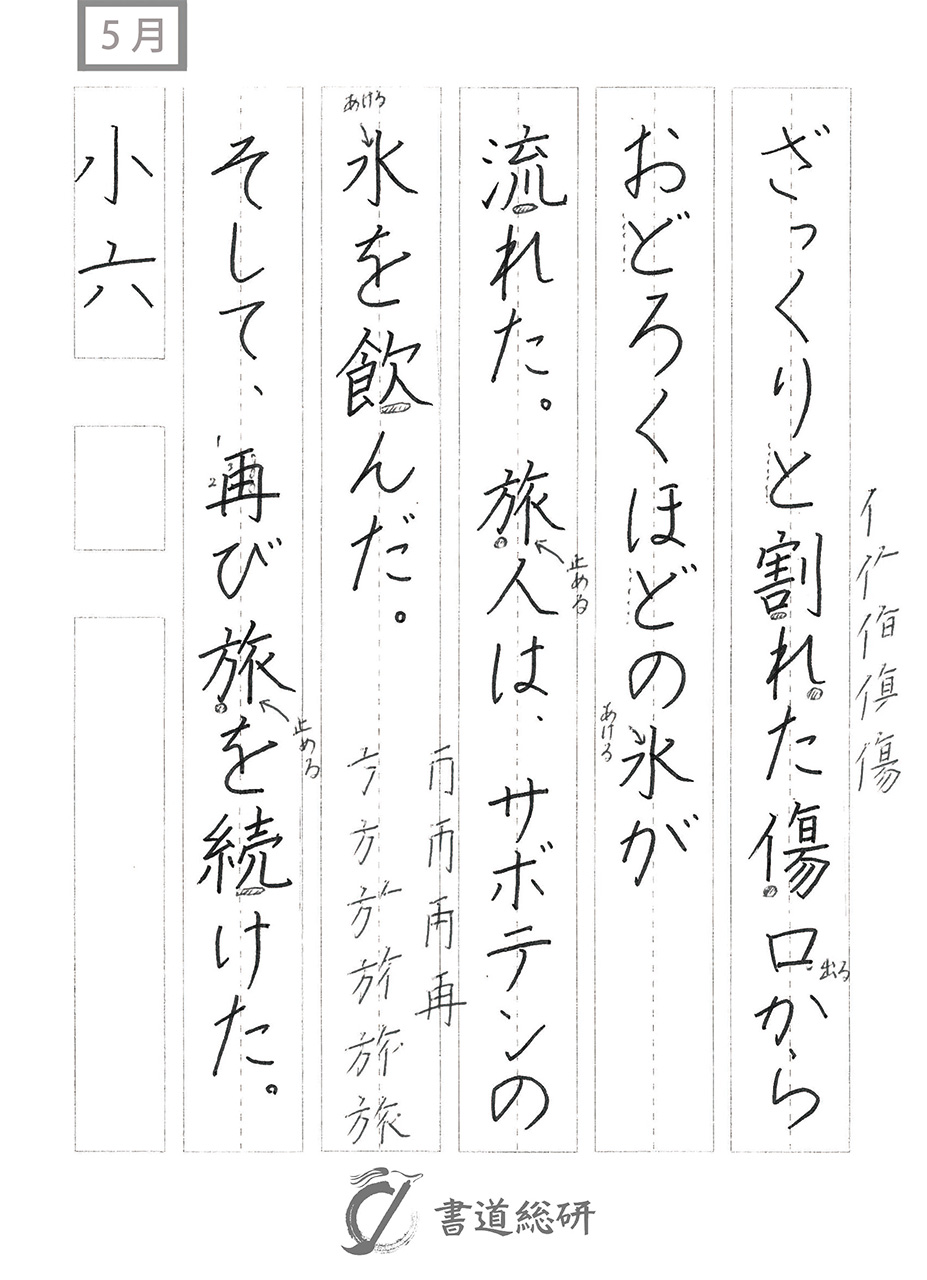 5月
ざっくりと割れた傷口から
傷
出る
おどろくほどの水が
あける
流れた。旅人は、サボテンの
止める
水を飲んだ。
あける
再
方
旅
そして、再び旅を続けた。
1
2
止める
小六
書道総研